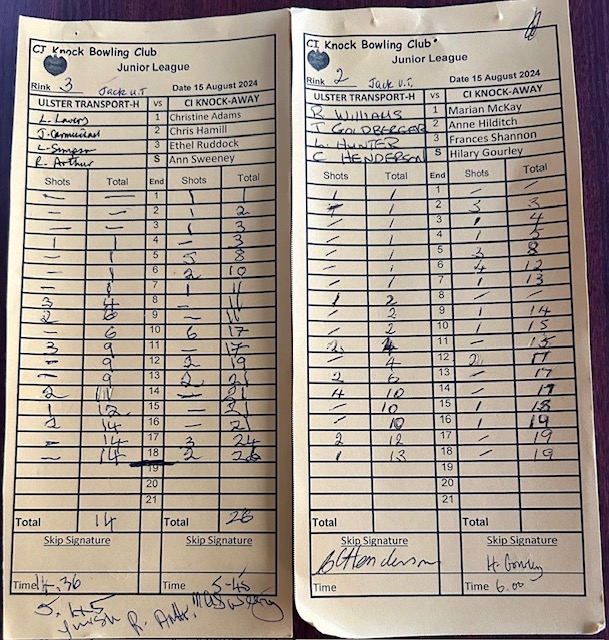 CI Knock Bowling Club
Junior League
Rink 3 Jack U.T Date 15 August 2024
ULSTER TRANSPORT-H vs CI KNOCK-AWAY
L. Lavery 1 Christine Adams
J. Carmichael 2 Chris Hamill
L. Simpson 3 Ethel Ruddock
R. Arthur S Ann Sweeney
Shots Total End Shots Total
— — 1 1 1
— — 2 1 2
— — 3 1 3
1 1 4 — 3
— 1 5 5 8
— 1 6 2 10
— 1 7 1 11
3 4 8 — 11
2 6 9 — 11
— 6 10 6 17
3 9 11 — 17
— 9 12 2 19
— 9 13 2 21
2 11 14 — 21
1 12 15 — 21
2 14 16 — 21
— 14 17 3 24
— 14 18 2 26
19
20
21
Total 14 Total 26
Skip Signature Skip Signature
Time Time 5-45
5.45
finish R. Arth. M A Sweeney
CI Knock Bowling Club
Junior League
Rink 2 Jack U.T. Date 15 August 2024
ULSTER TRANSPORT-H vs CI KNOCK-AWAY
R WILLIAMS 1 Marian McKay
J GOLDBERGER 2 Anne Hilditch
L. HUNTER 3 Frances Shannon
C HENDERSON S Hilary Gourley
Shots Total End Shots Total
1 1 1 — —
— 1 2 3 3
— 1 3 1 4
— 1 4 1 5
— 1 5 3 8
— 1 6 4 12
— 1 7 1 13
1 2 8 — —
— 2 9 1 14
— 2 10 1 15
2 4 11 — 15
— 4 12 2 17
2 6 13 — 17
4 10 14 — 17
— 10 15 1 18
— 10 16 1 19
2 12 17 — 19
1 13 18 — 19
19
20
21
Total Total
Skip Signature Skip Signature
C Henderson H. Gourley
Time Time 6.00